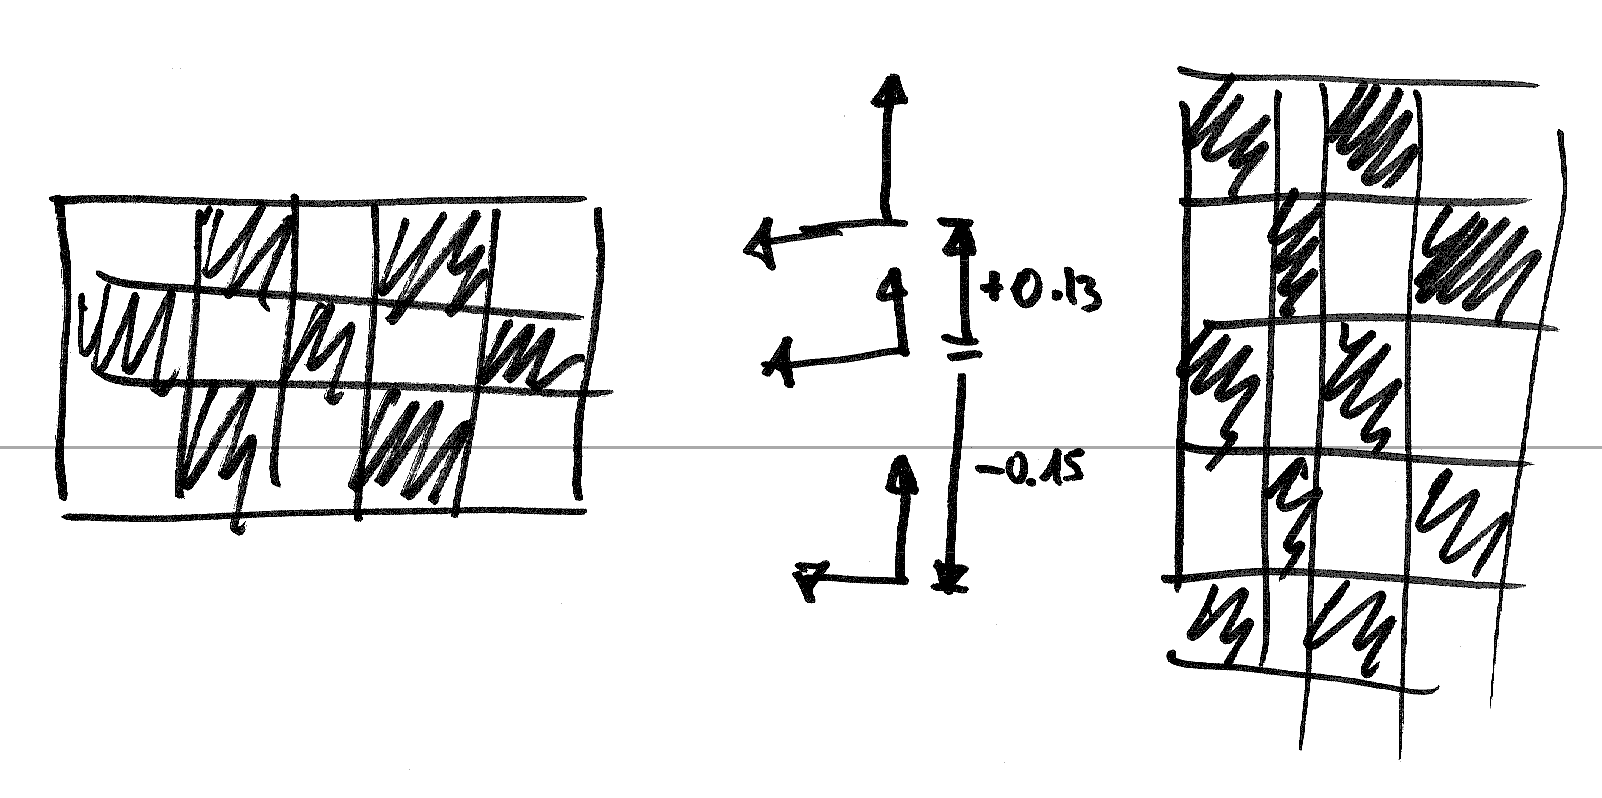 +0.13
-0.15